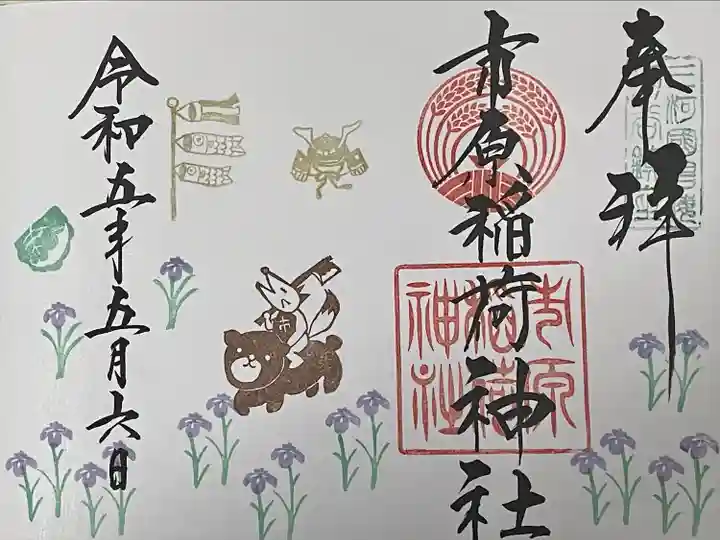 奉拝
市原稲荷神社
市原
稲荷
神社
市
令和五年五月六日